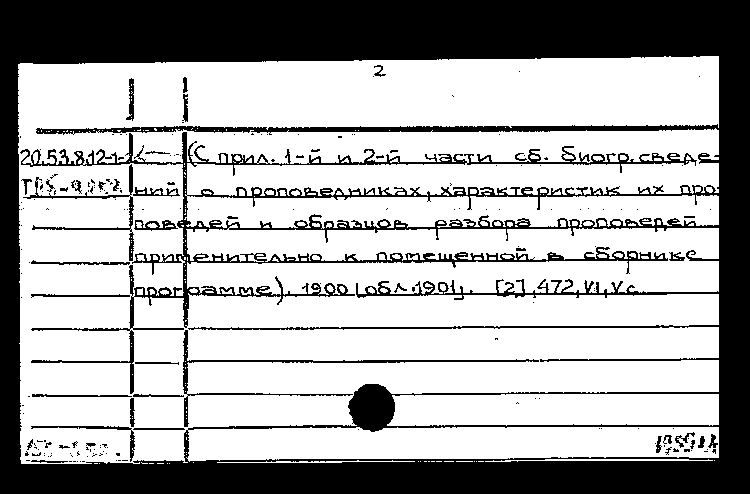 2
20.53.8.12-1- (С прил. 1-й и 2-й части сб. биогр. сведе-
ний о проповедниках, характеристик их про-
поведей и образцов разбора проповедей
применительно к помещенной в сборнике
программе). 1900 [обл. 1901]. [2], 472, VI, V с.